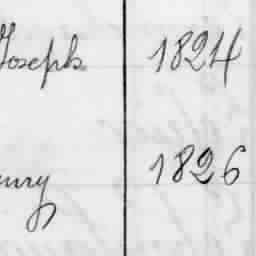 Joseph 1824
enry 1826